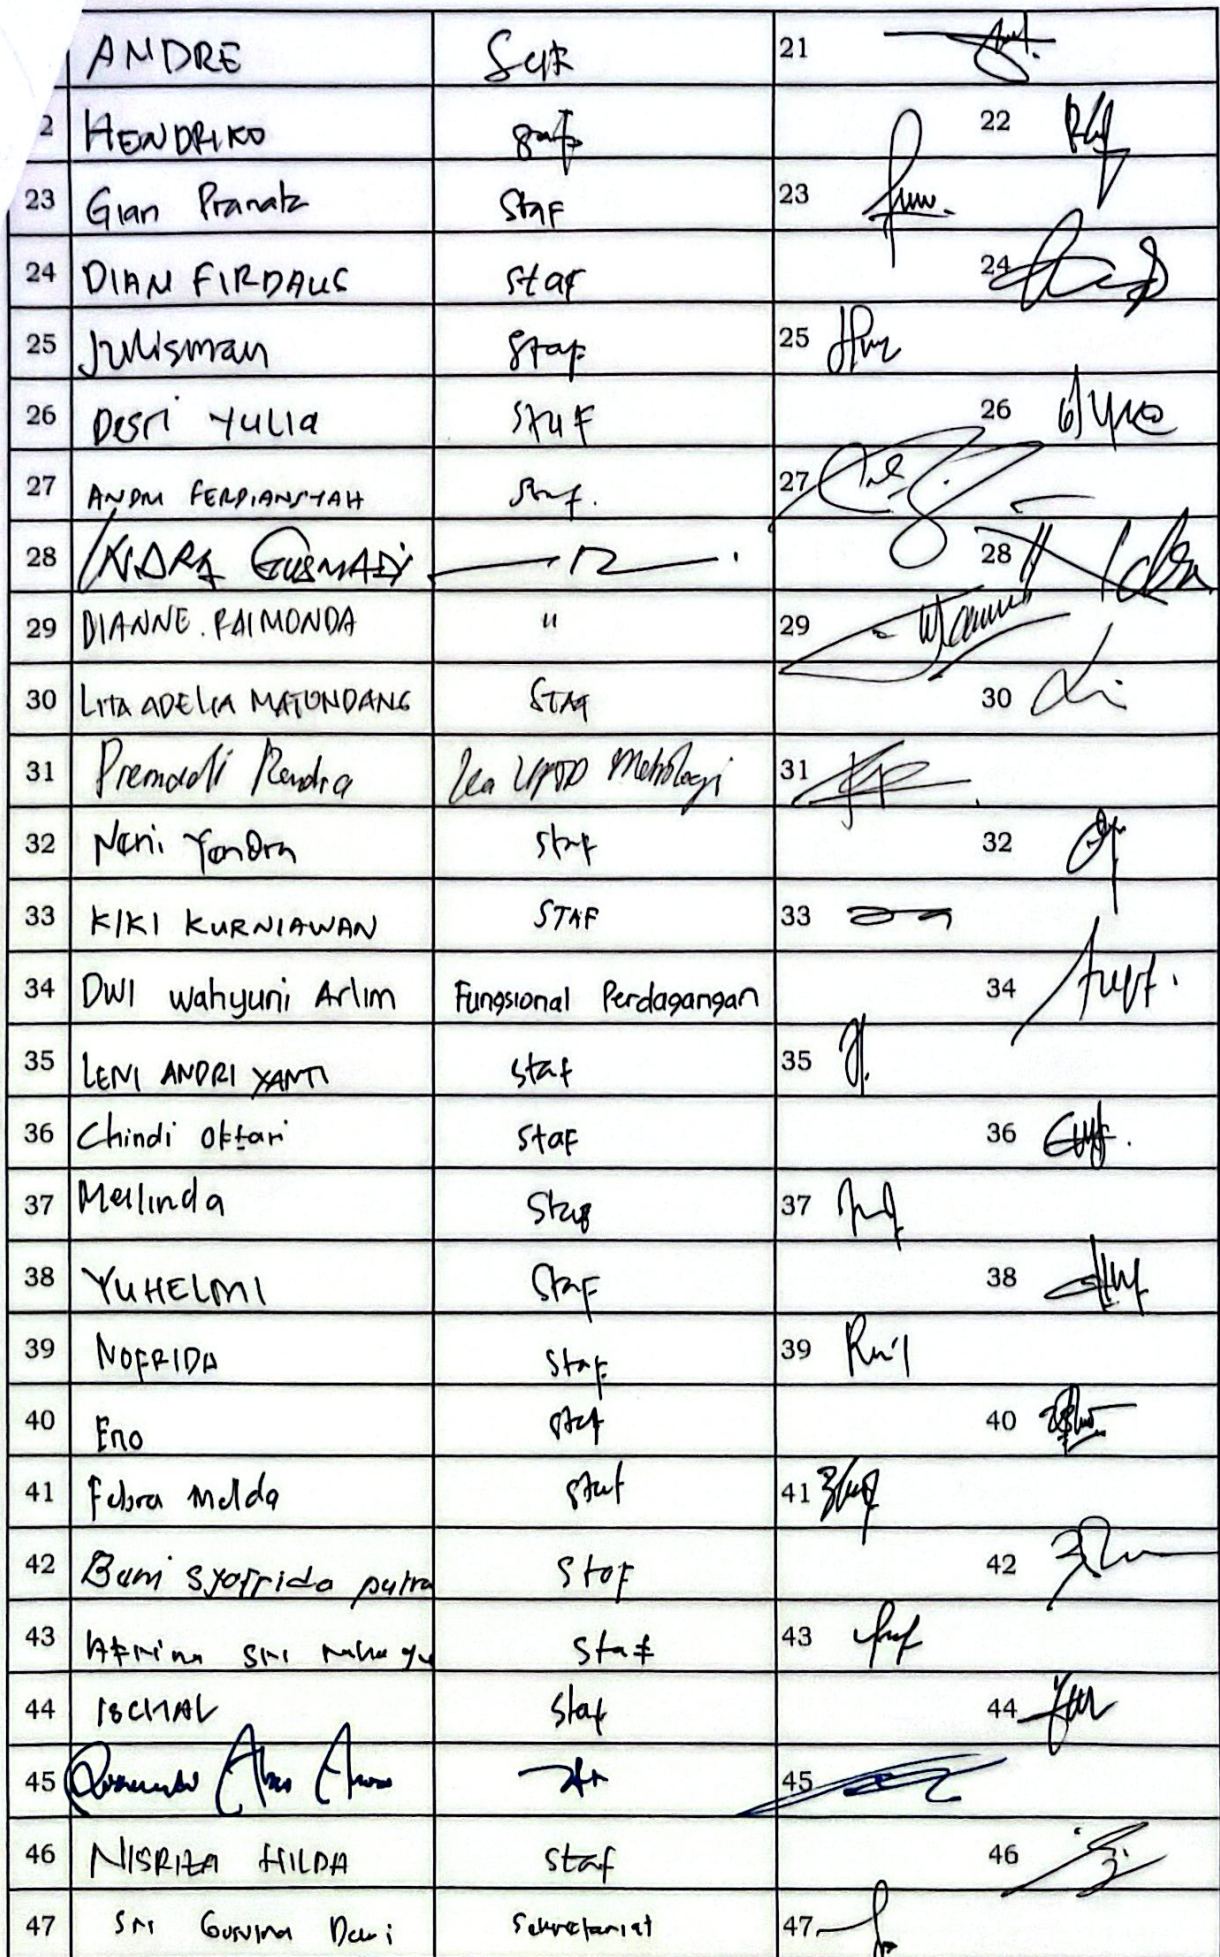 ANDRE Staf 21
2 HENDRIKO Staf 22
23 Gian Pranata Staf 23
24 DIAN FIRDAUS Staf 24
25 Julisman Staf 25
26 Desri Yulia Staf 26
27 ANDM FERDIANSYAH Staf. 27
28 INDRA GUSMADI 28
29 DIANNE. RAIMONDA " 29
30 LITA ADELIA MATONDANG STAF 30
31 Premadi Rendra Ka UPTD Metrologi 31
32 Neni Yondra Staf 32
33 KIKI KURNIAWAN STAF 33
34 DWI Wahyuni Arlim Fungsional Perdagangan 34
35 LENI ANDRI YANTI Staf 35
36 Chindi Oktari Staf 36
37 Meilinda Staf 37
38 YUHELMI Staf 38
39 NOFRIDA Staf 39
40 Eno Staf 40
41 Febra Melda Staf 41
42 Bani Syofrida putra Stof 42
43 Afrina Sri Staf 43
44 ISCHAL Staf 44
45 45
46 NISRIZA HILDA Staf 46
47 Sri Gusvina Dewi Sekretariat 47